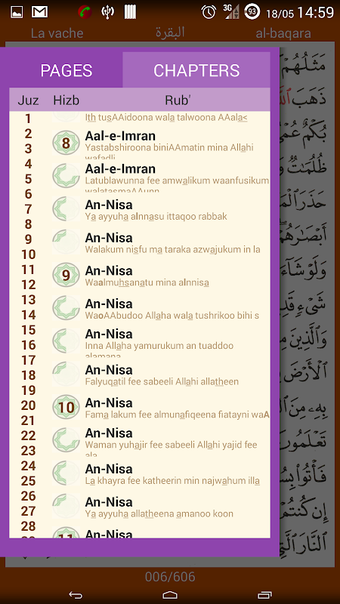 3G 93 18/05 14:59
La vache البقرة al-baqara
PAGES CHAPTERS
Juz Hizb Rub'
1
2
3
4
5
6
7
8
9
10
11
12
13
14
15
16
17
18
19
20
21
22
23
24
25
26
27
28
Ith tusAAidoona wala talwoona AAala<
8 Aal-e-Imran
Yastabshiroona biniAAmatin mina Allahi
wafadli
Aal-e-Imran
Latublawunna fee amwalikum waanfusikum
walatasmaAAunn
An-Nisa
Ya ayyuha alnnasu ittaqoo rabbak
An-Nisa
Walakum nisfu ma taraka azwajukum in la
9 An-Nisa
Waalmuhsanatu mina alnnisa
An-Nisa
WaoAAbudoo Allaha wala tushrikoo bihi s
An-Nisa
Inna Allaha yamurukum an tuaddoo
alamana
An-Nisa
Falyuqatil fee sabeeli Allahi allatheen
10 An-Nisa
Fama lakum fee almunafiqeena fiatayni waA
An-Nisa
Waman yuhajir fee sabeeli Allahi yajid fee
ala
An-Nisa
La khayra fee katheerin min najwahum illa
An-Nisa
Ya ayyuha allatheena amanoo koon
11 An-Nisa
مَثَلُهُمْ
ذَهَبَ اللَّهُ
بُكْمٌ عُمْيٌ
ظُلُمَٰتٌ
حَذَرَ
أَبْصَٰرَهُمْ
وَلَوْ شَآءَ
شَىْءٍ
وَالَّذِينَ
الْأَرْضَ
بِهِۦ مِنَ
تَعْلَمُونَ
فَأْتُوا
إِن كُنتُمْ
النَّارَ الَّتِى
006/606